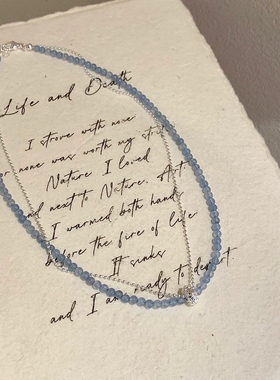 Life and Death
I strove with none
for none was worth my strife
Nature I loved
and next to Nature, Art
I warmed both hands
before the fire of life
It sinks
and I am ready to depart